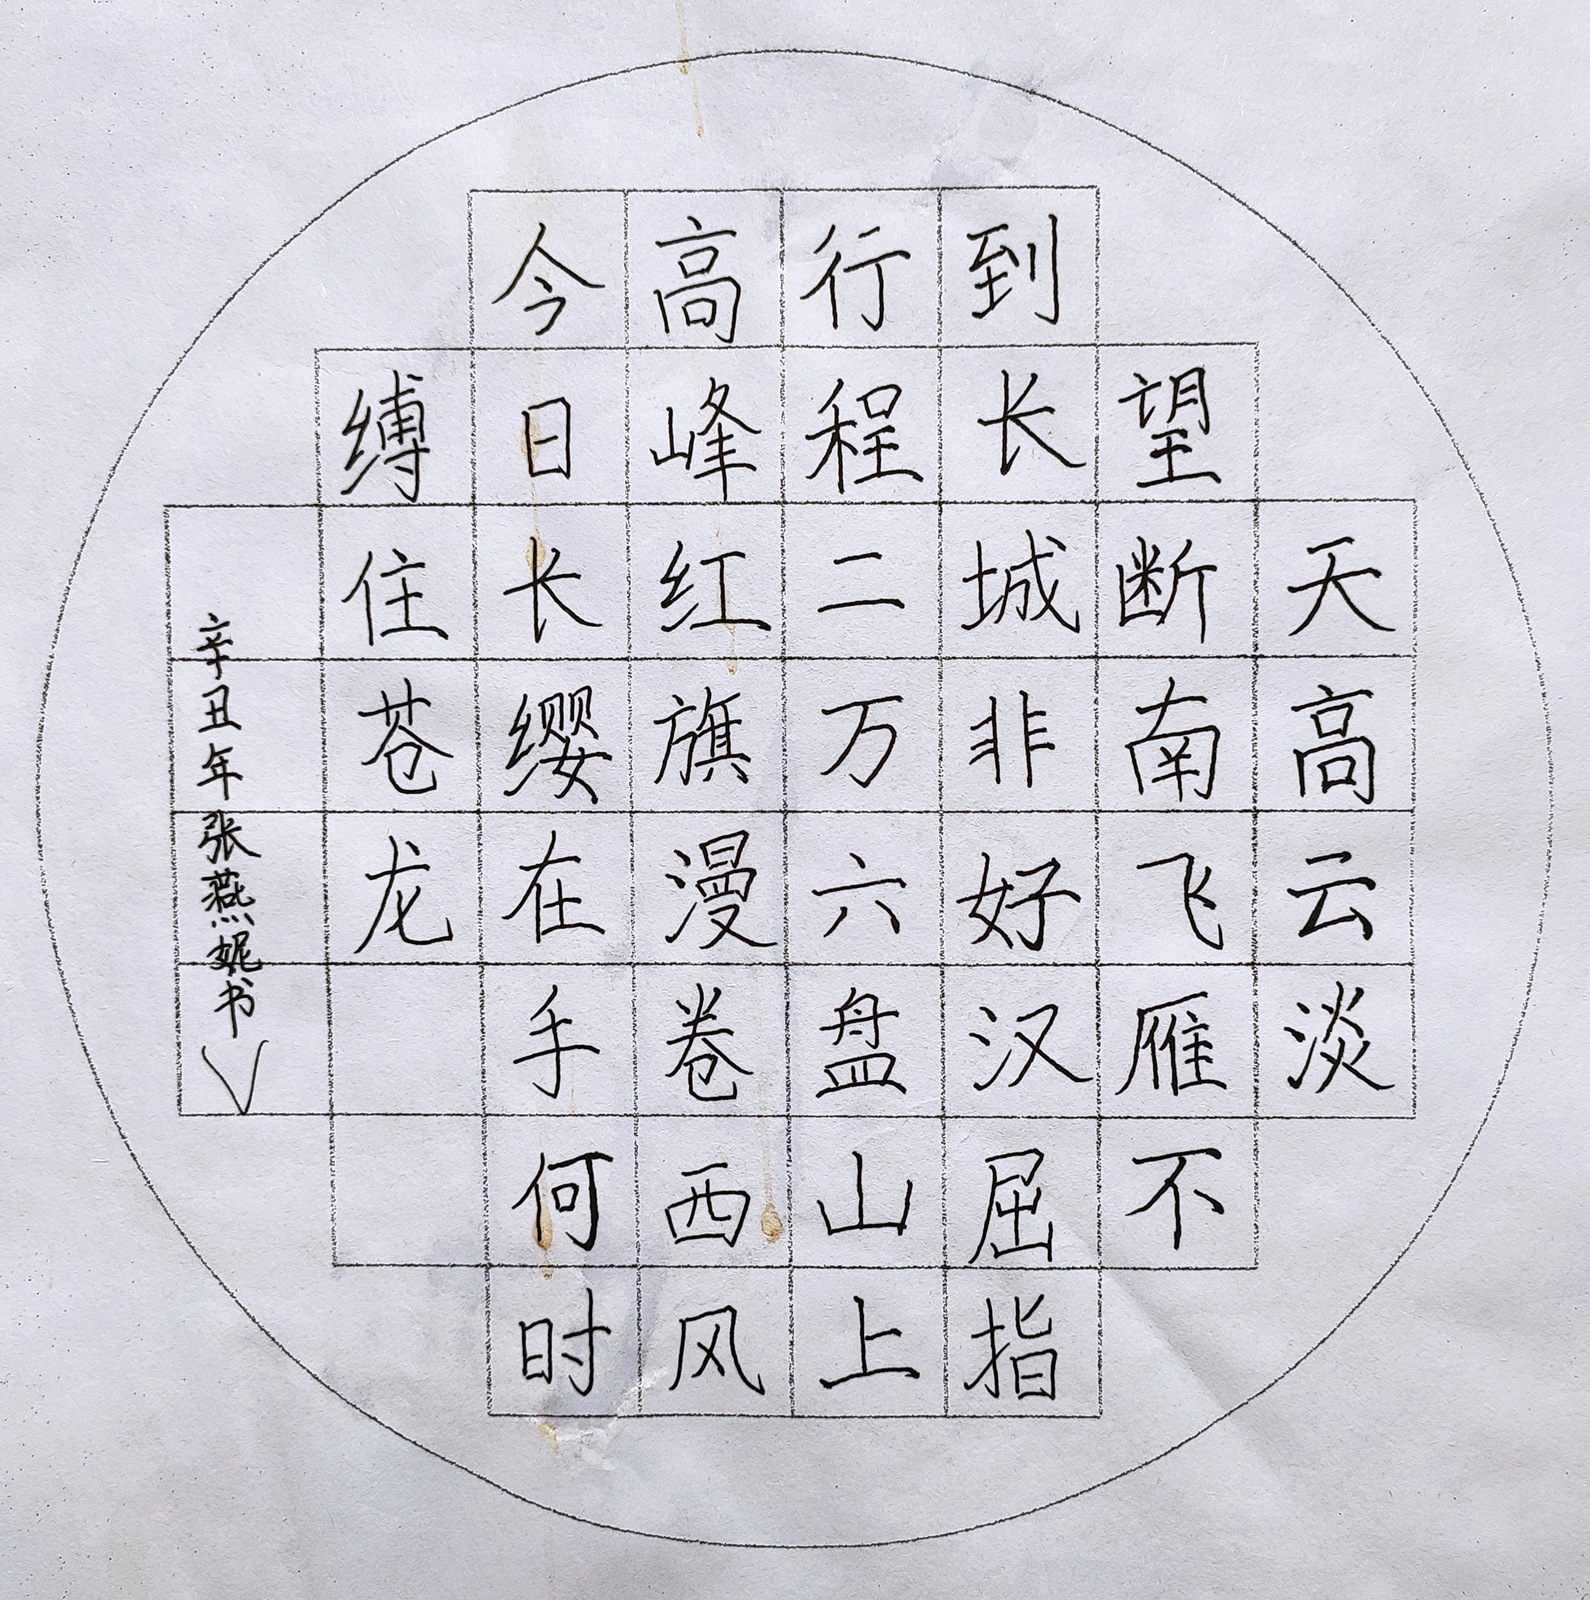 天高云淡
望断南飞雁不
到长城非好汉屈指
行程二万六盘山上
高峰红旗漫卷西风
今日长缨在手何时
缚住苍龙
辛丑年张燕妮书